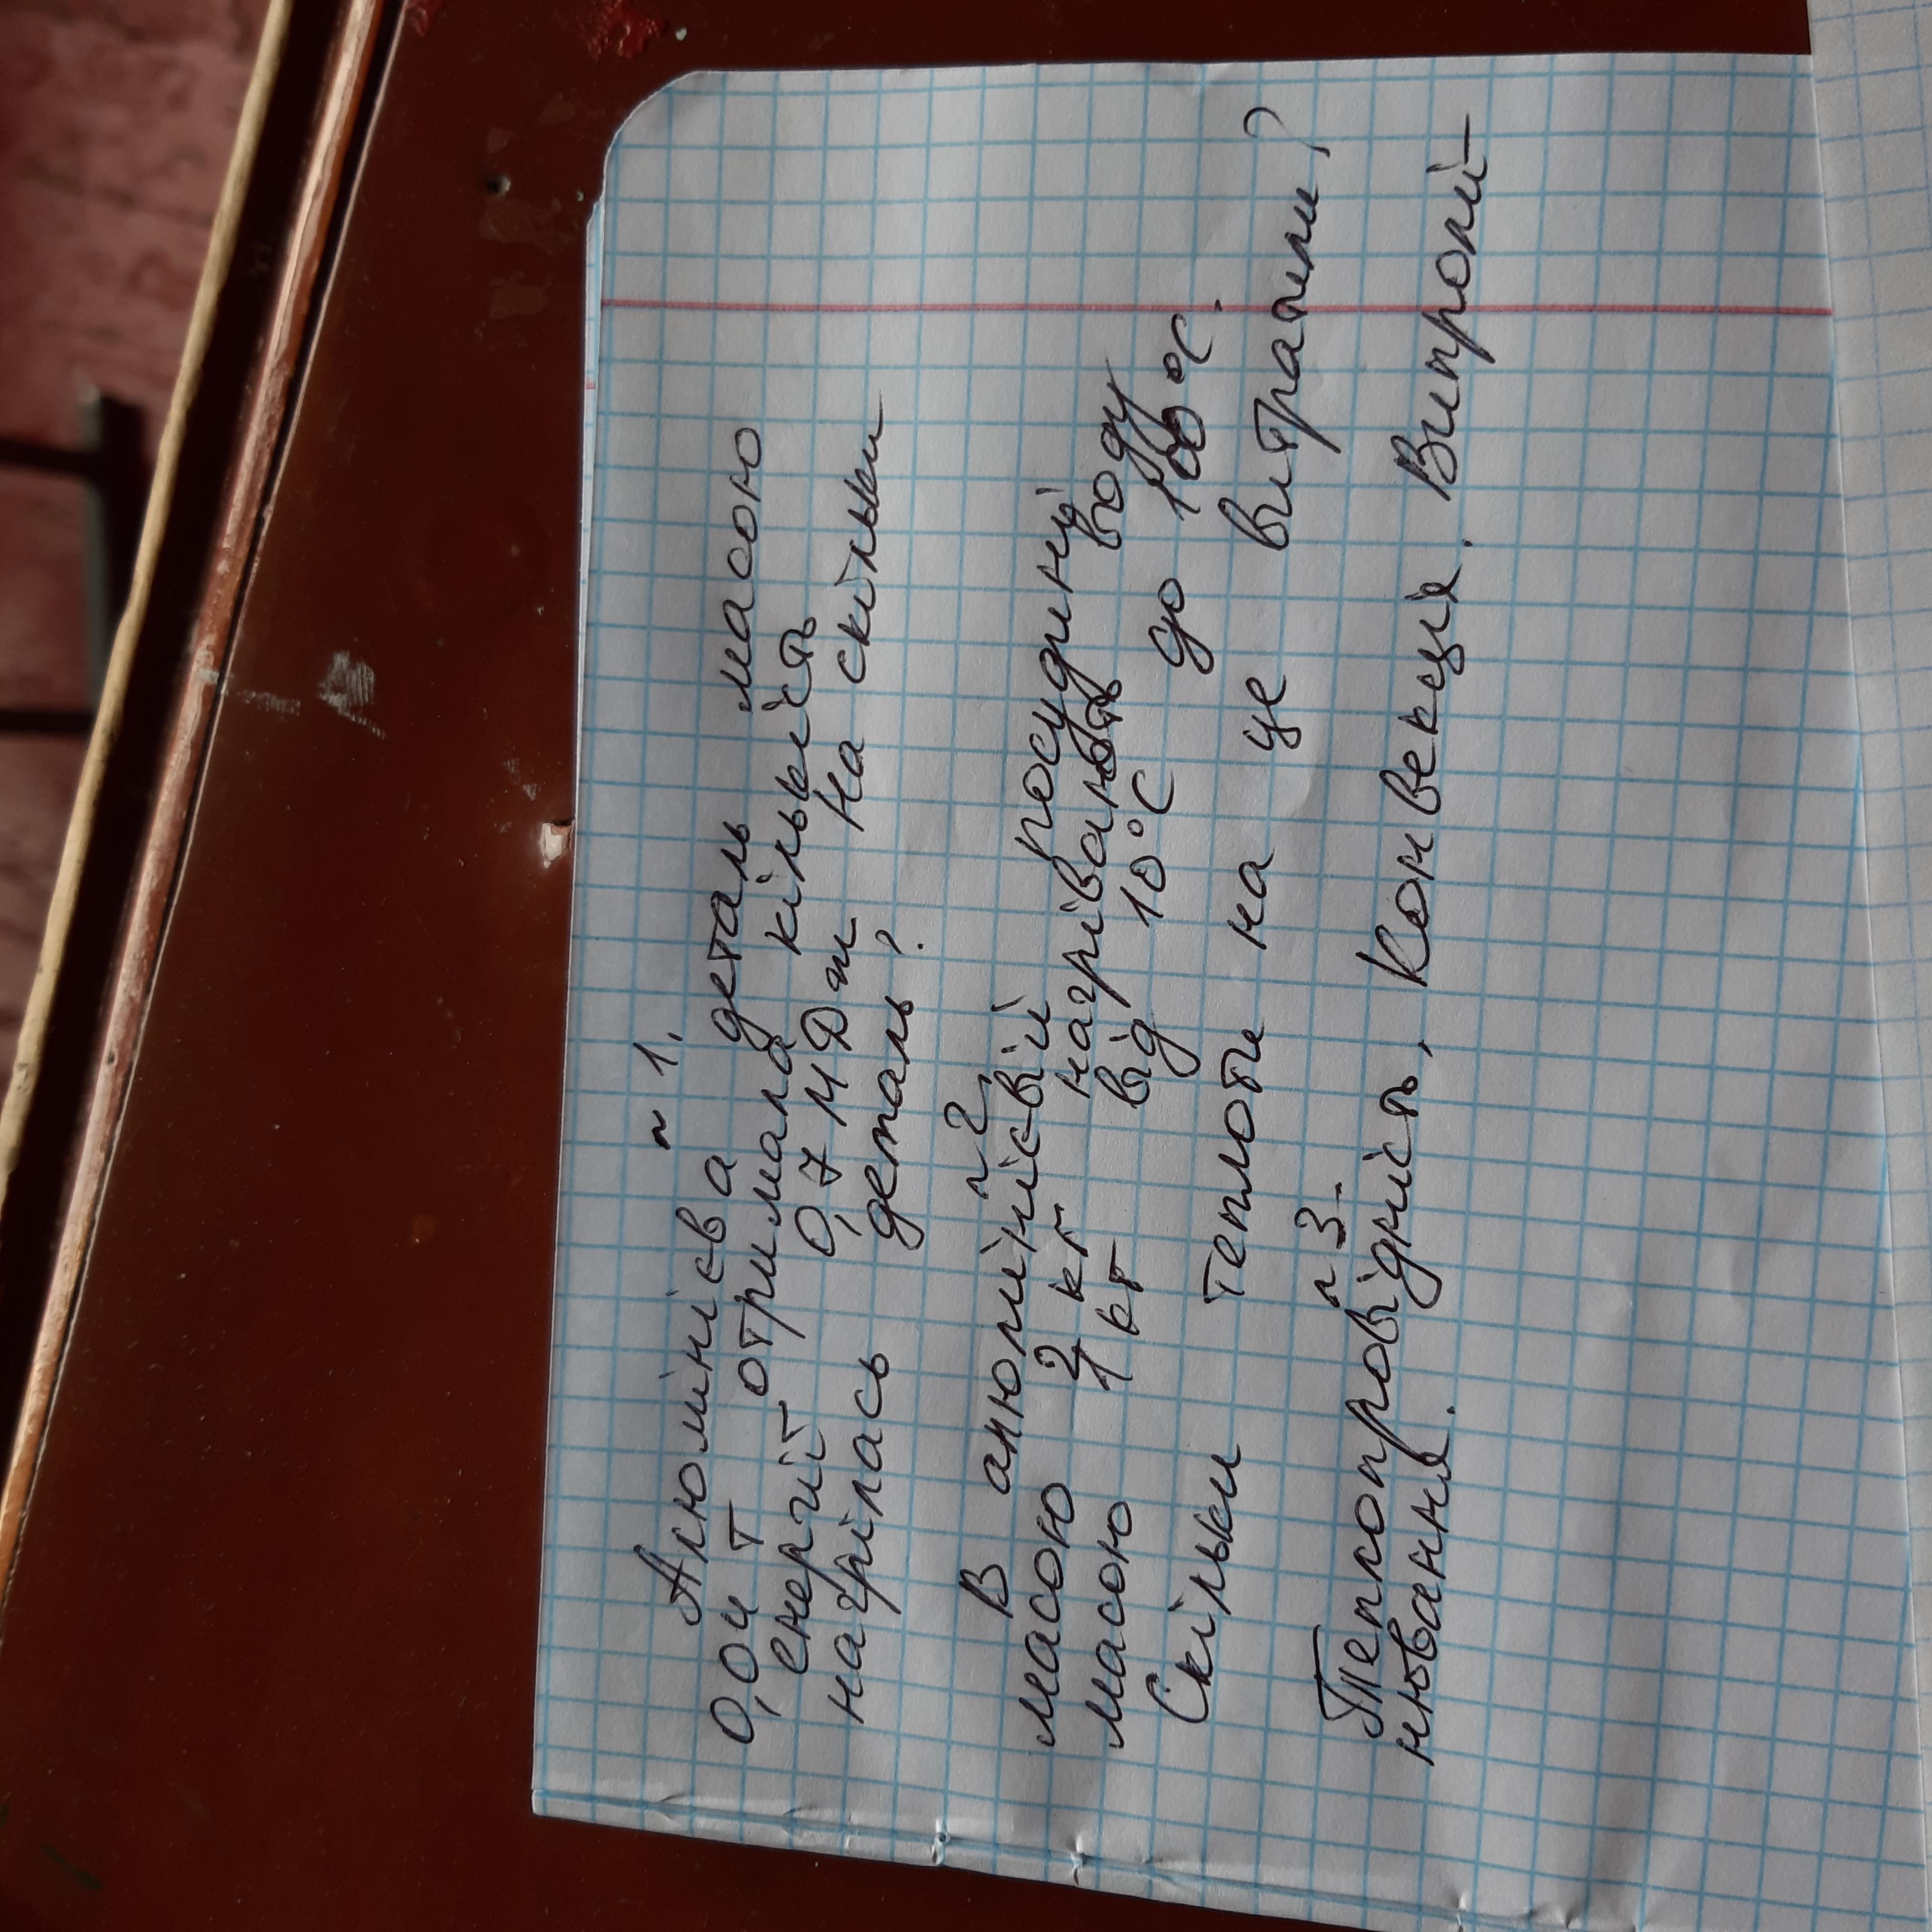 ~ 1.
Алюмінієва деталь масою
0,04 т отримала кількість
енергії 0,7 МДж На скільки
нагрілась деталь?
~ 2
В алюмінієвій посудині
масою 2 кг нагрівають воду
масою 1 кг від 10°C до 100°C.
Скільки теплоти на це витратили?
~ 3.
Теплопровідність, Конвекція. Випромі-
нювання.